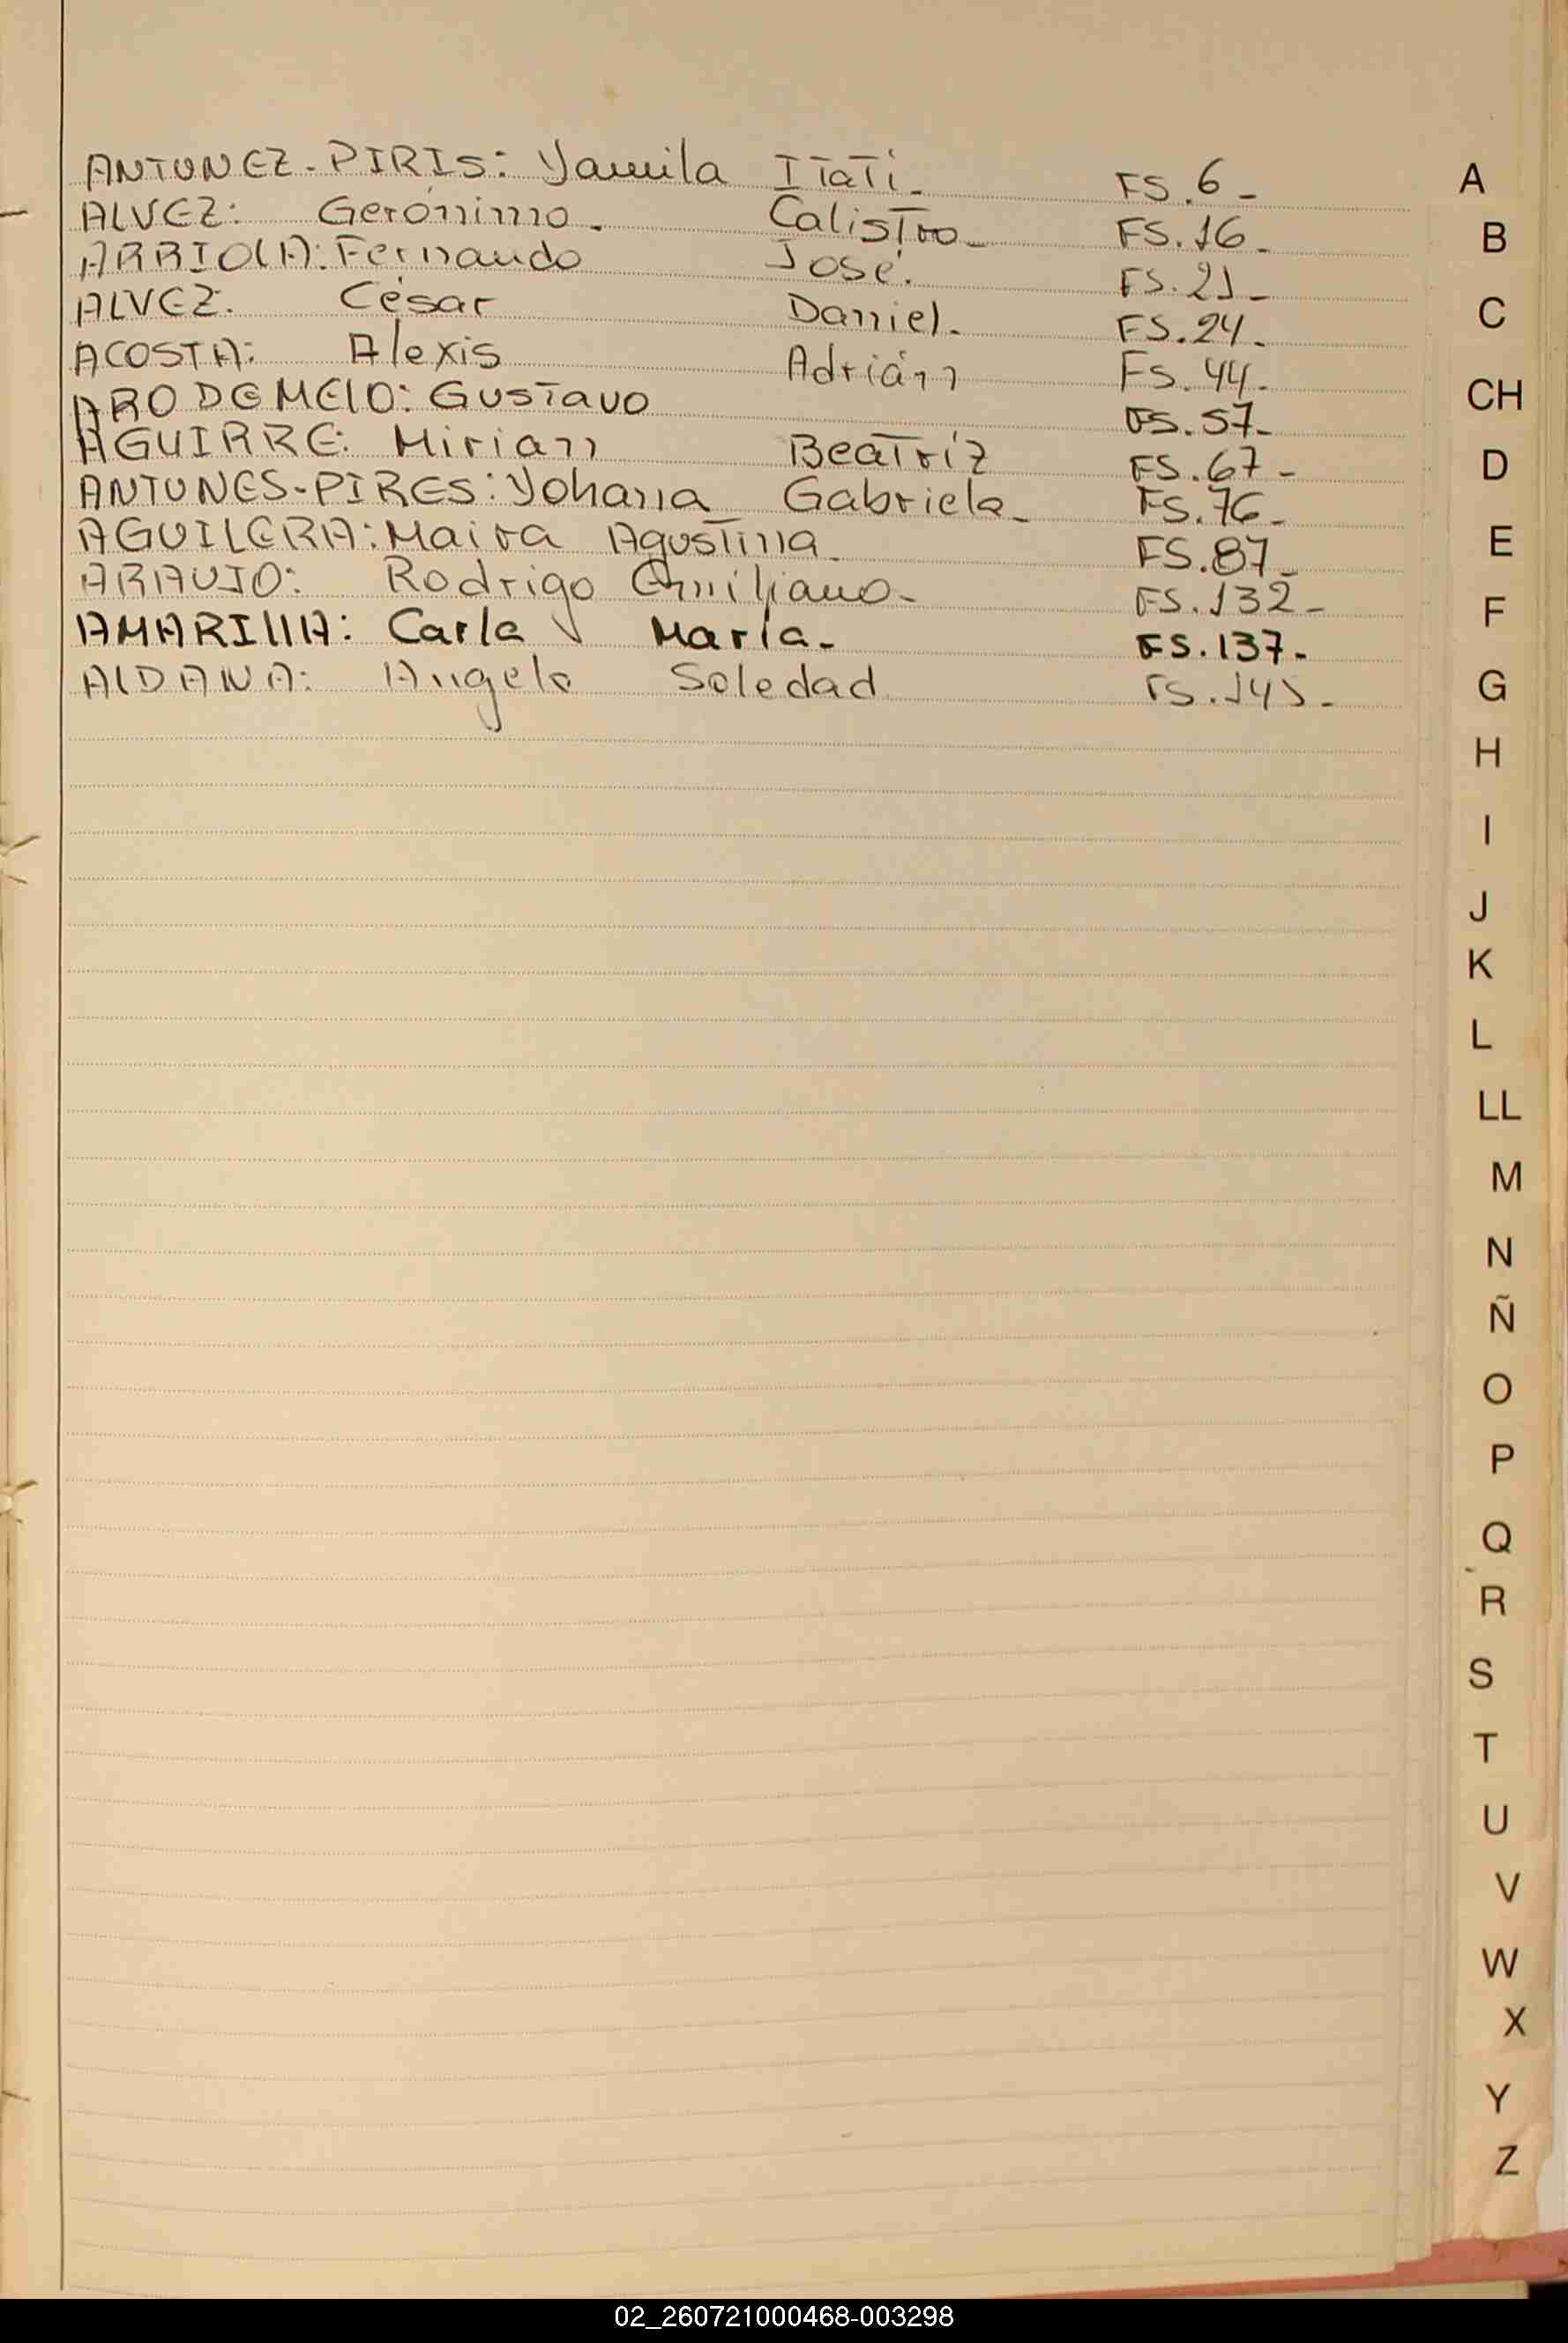 ANTUNEZ-PIRIS: Yamila Itatí. FS. 6-
ALVEZ: Gerónimo. Calistro- FS. 16-
ARRIOLA: Fernando José. FS. 21-
ALVEZ: César Daniel. FS. 24-
ACOSTA: Alexis Adrián FS. 44-
ARO DE MELO: Gustavo FS. 57-
AGUIRRE: Mirian Beatriz FS. 67-
ANTUNES-PIRES: Yohana Gabriela- FS. 76-
AGUILERA: Maira Agustina- FS. 87-
ARAUJO: Rodrigo Emiliano- FS. 132-
AMARILLA: Carla María- FS. 137-
ALDANA: Angela Soledad FS.
A
B
C
CH
D
E
F
G
H
I
J
K
L
LL
M
N
Ñ
O
P
Q
R
S
T
U
V
W
X
Y
Z
02_260721000468-003298